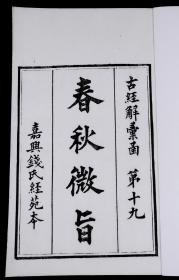 古經解彙函 第十九
春秋微旨
嘉興錢氏經苑本